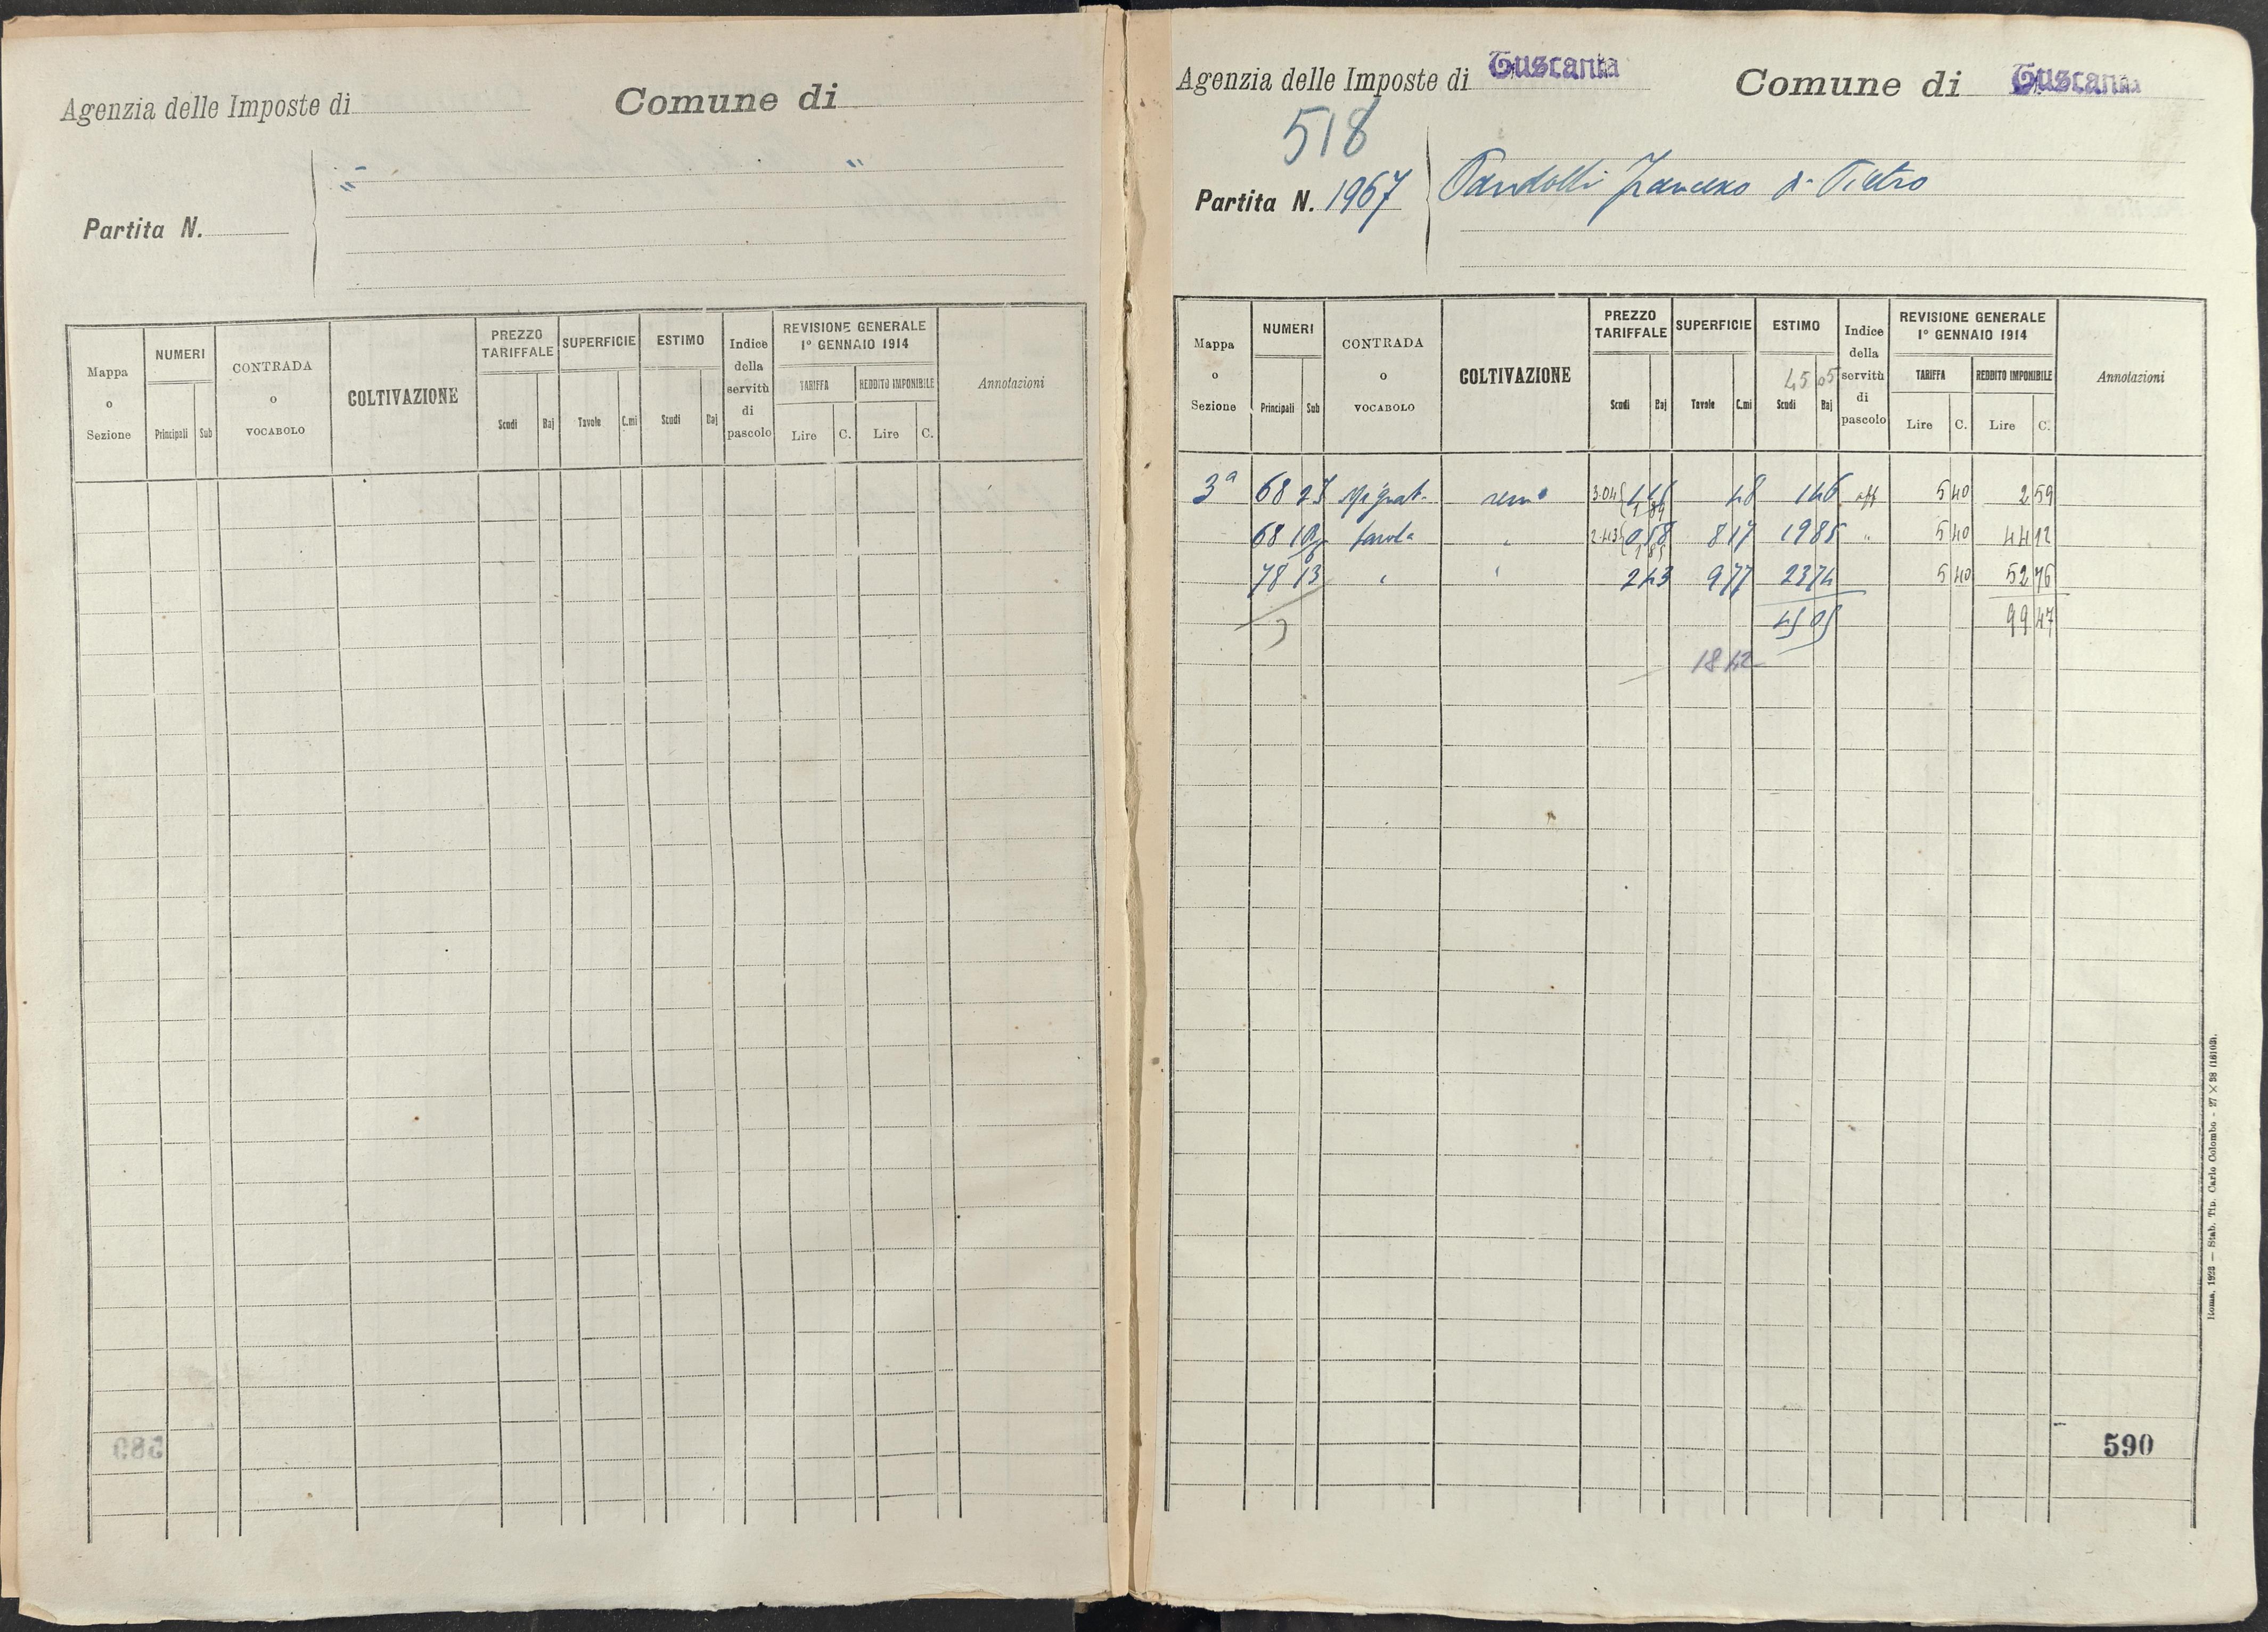 Agenzia delle Imposte di
Comune di
" "
Partita N.
Mappa o Sezione
NUMERI
Principali Sub
CONTRADA o VOCABOLO
COLTIVAZIONE
PREZZO TARIFFALE
Scudi Baj
SUPERFICIE
Tavole C.mi
ESTIMO
Scudi Baj
Indice della servitù di pascolo
REVISIONE GENERALE
1° GENNAIO 1914
TARIFFA
Lire C.
REDDITO IMPONIBILE
Lire C.
Annotazioni
Agenzia delle Imposte di Tuscania
Comune di Tuscania
518
Partita N. 1967
Pandolfi Francesco di Pietro
Mappa o Sezione
NUMERI
Principali Sub
CONTRADA o VOCABOLO
COLTIVAZIONE
PREZZO TARIFFALE
Scudi Baj
SUPERFICIE
Tavole C.mi
ESTIMO
45 05
Scudi Baj
Indice della servitù di pascolo
REVISIONE GENERALE
1° GENNAIO 1914
TARIFFA
Lire C.
REDDITO IMPONIBILE
Lire C.
Annotazioni
3ª 68 sem 3.04 48 1 46 aff 5 40 2 59
68 " 2.43 8 17 19 85 " 5 40 44 12
78 13 " " 2 43 9 77 23 74 5 40 52 76
45 05 99 47
18 42
590
Roma, 1923 — Stab. Tip. Carlo Colombo - 27 × 38 (16103).